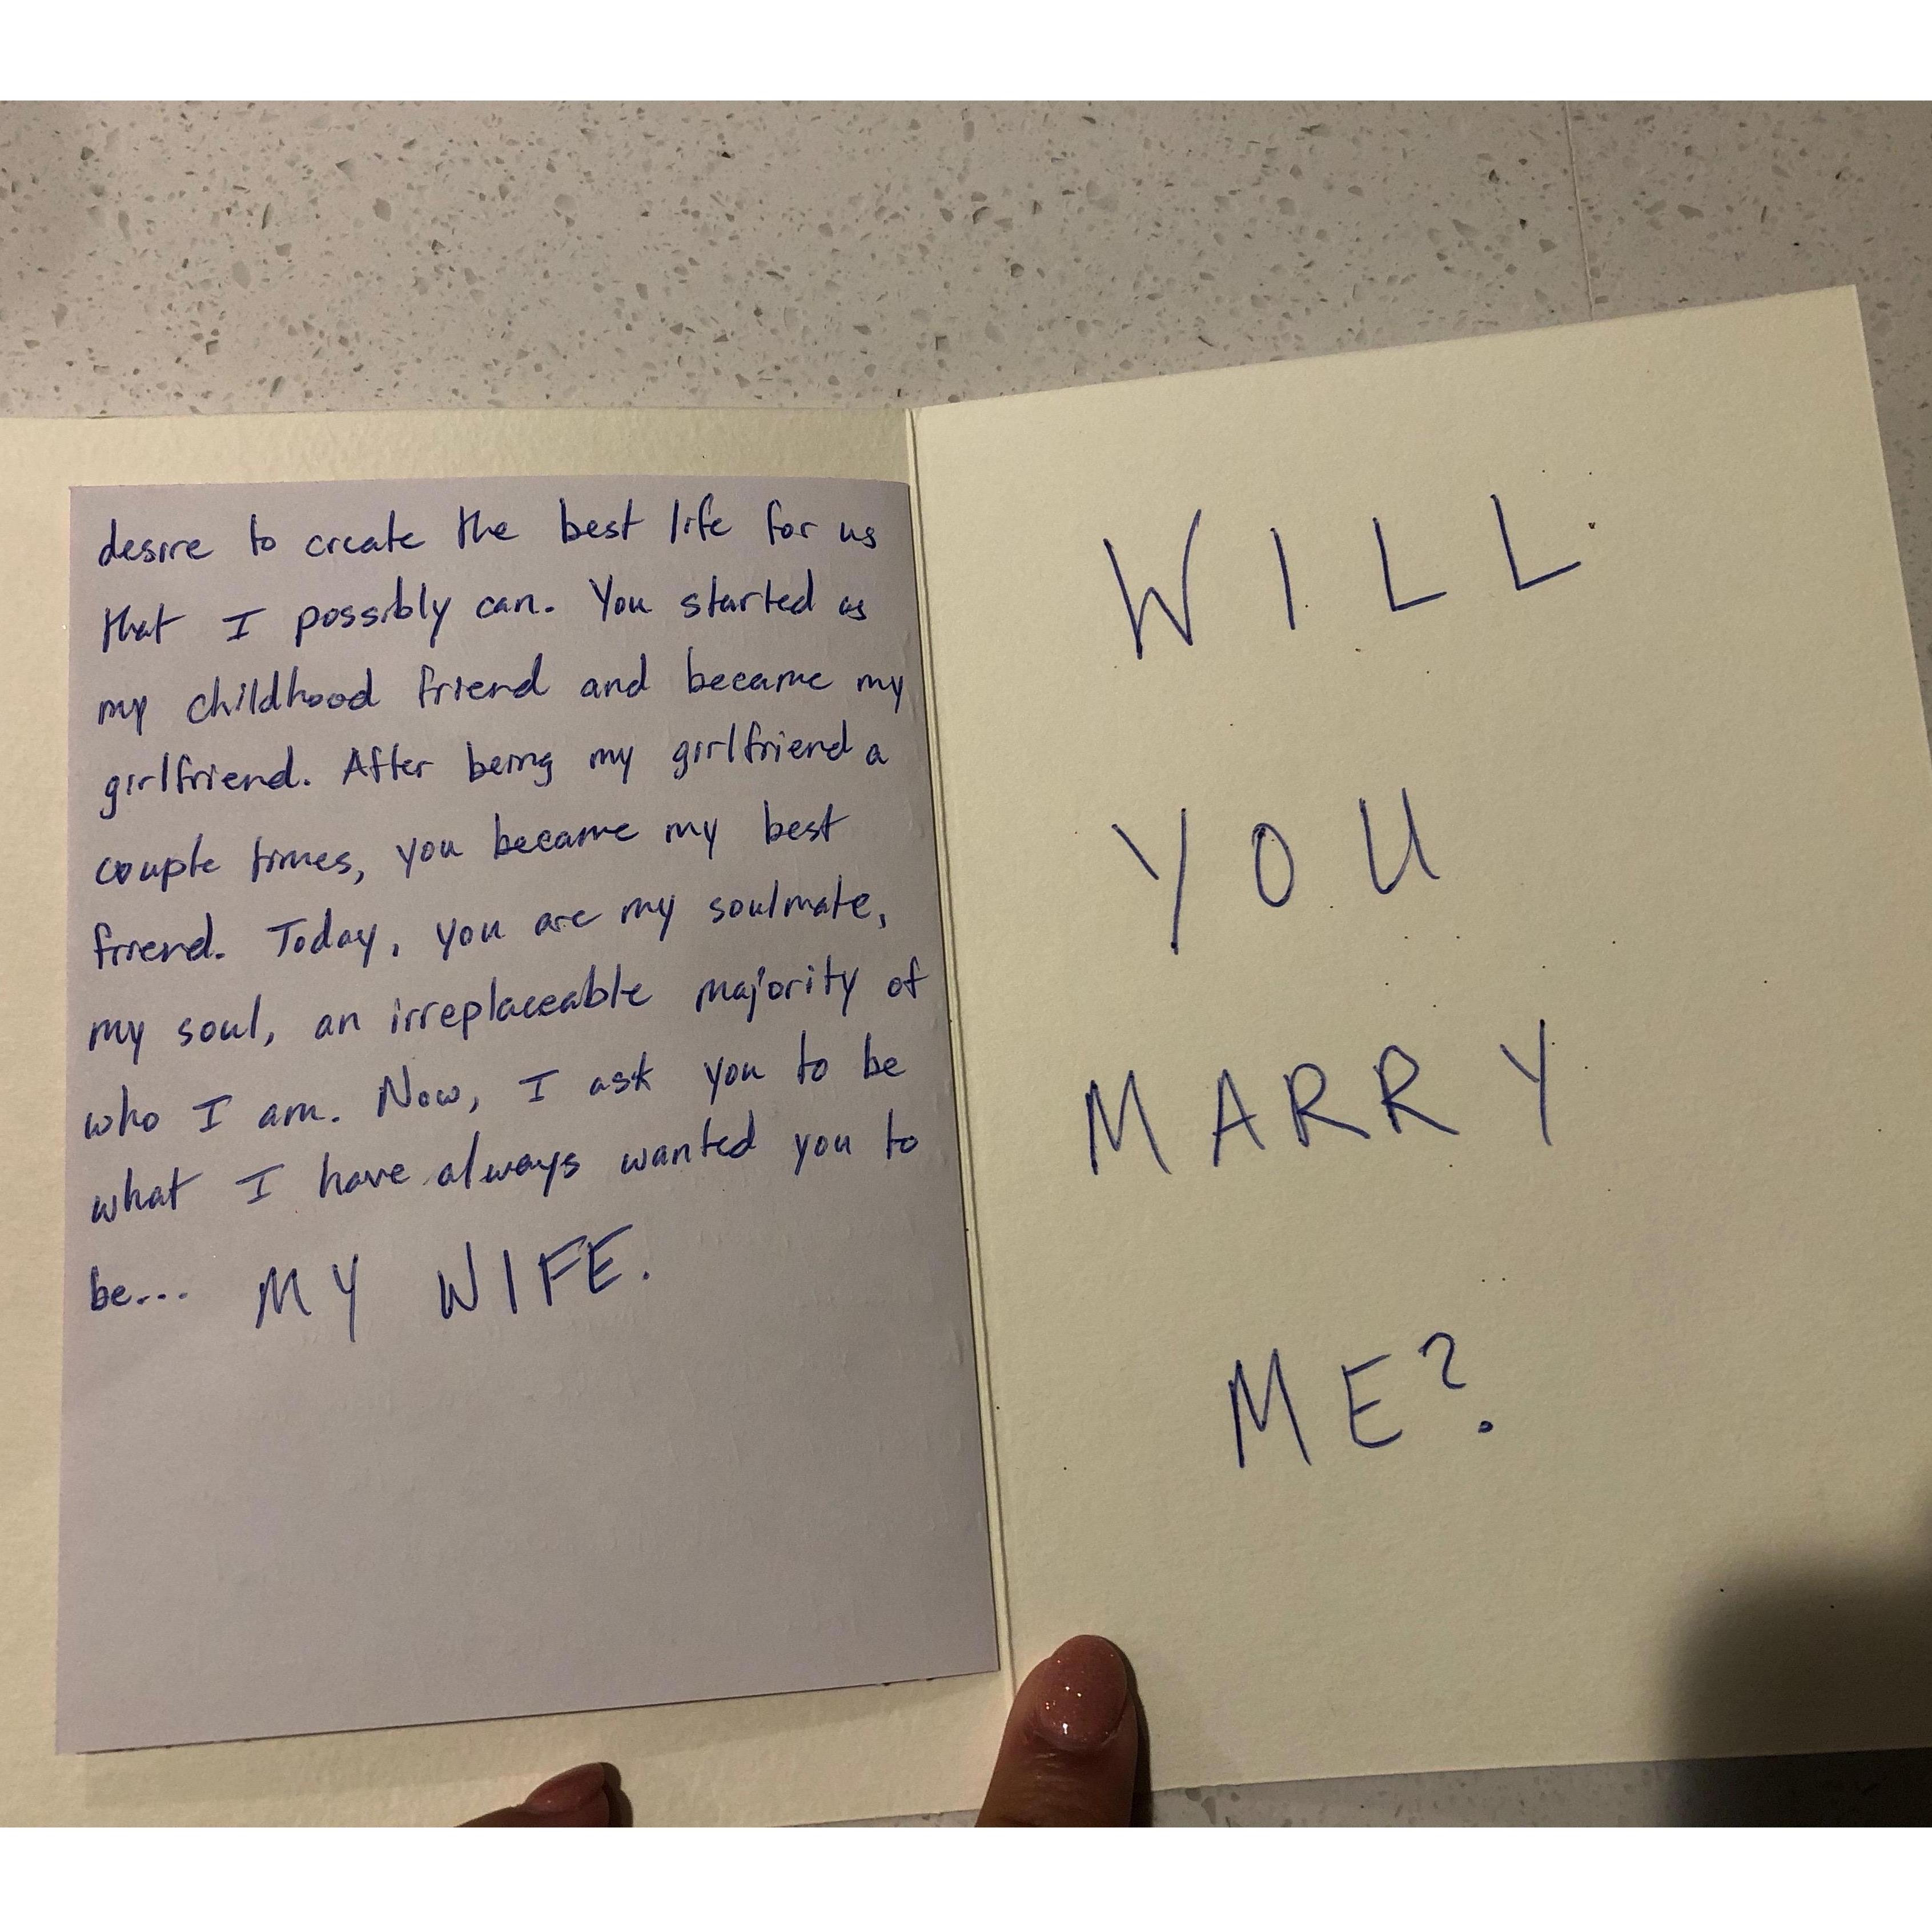 desire to create the best life for us
that I possibly can. You started as
my childhood friend and became my
girlfriend. After being my girlfriend a
couple times, you became my best
friend. Today, you are my soulmate,
my soul, an irreplaceable majority of
who I am. Now, I ask you to be
what I have always wanted you to
be... MY WIFE.
WILL
YOU
MARRY
ME?